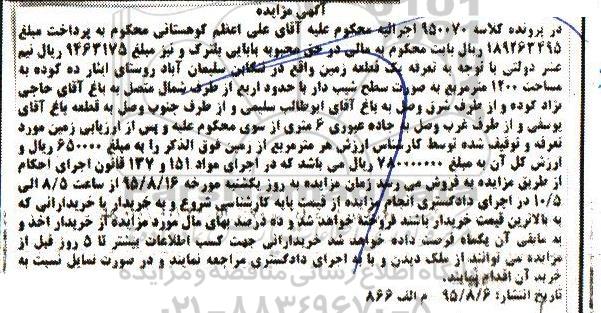 آگهی مزایده
در پرونده کلاسه ۹۵۰۰۷۰ اجرائیه محکوم علیه آقای علی اعظم کوهستانی محکوم به پرداخت مبلغ
۱۸۹۲۶۳۴۹۵ ریال بابت محکوم به مالی در حق محبوبه بابایی بلترک و نیز مبلغ ۹۴۶۳۱۷۵ ریال نیم
عشر دولتی با توجه به تعرفه یک قطعه زمین واقع در تنکابن سلیمان آباد روستای ایثار ده گوده به
مساحت ۱۲۰۰ مترمربع به صورت سطح شیب دار با حدود اربع از طرف شمال متصل به باغ آقای حاجی
نژاد کرده و از طرف شرق وصل به باغ آقای ابوطالب سلیمی و از طرف جنوب وصل به قطعه باغ آقای
یوسفی و از طرف غرب وصل به جاده عبوری ۶ متری از سوی محکوم علیه و پس از ارزیابی زمین مورد
تعرفه و توقیف شده توسط کارشناس ارزش هر مترمربع از زمین فوق الذکر را به مبلغ ۶۵۰۰۰۰ ریال و
ارزش کل آن به مبلغ ۷۸۰۰۰۰۰۰۰ ریال می باشد که در اجرای مواد ۱۵۱ و ۱۳۷ قانون اجرای احکام
از طریق مزایده به فروش می رسد زمان مزایده در روز یکشنبه مورخه ۹۵/۸/۱۶ از ساعت ۸/۵ الی
۱۰/۵ در اجرای دادگستری انجام مزایده از قیمت پایه کارشناسی شروع و به خریدار یا خریدارانی که
به بالاترین قیمت خریدار باشند فروخته خواهد شد و ده درصد بهای مال مورد مزایده از خریدار اخذ و
به مابقی آن یکماه فرصت داده خواهد شد خریدارانی جهت کسب اطلاعات بیشتر تا ۵ روز قبل از
مزایده می توانند از ملک دیدن و یا به اجرای دادگستری مراجعه نمایند و در صورت تمایل نسبت به
خرید آن اقدام نمایند.
پایگاه اطلاع رسانی مناقصه و مزایده
تاریخ انتشار: ۹۵/۸/۶ م الف ۸۶۶
۰۲۱-۸۸۳۴۹۶۷۰-۵